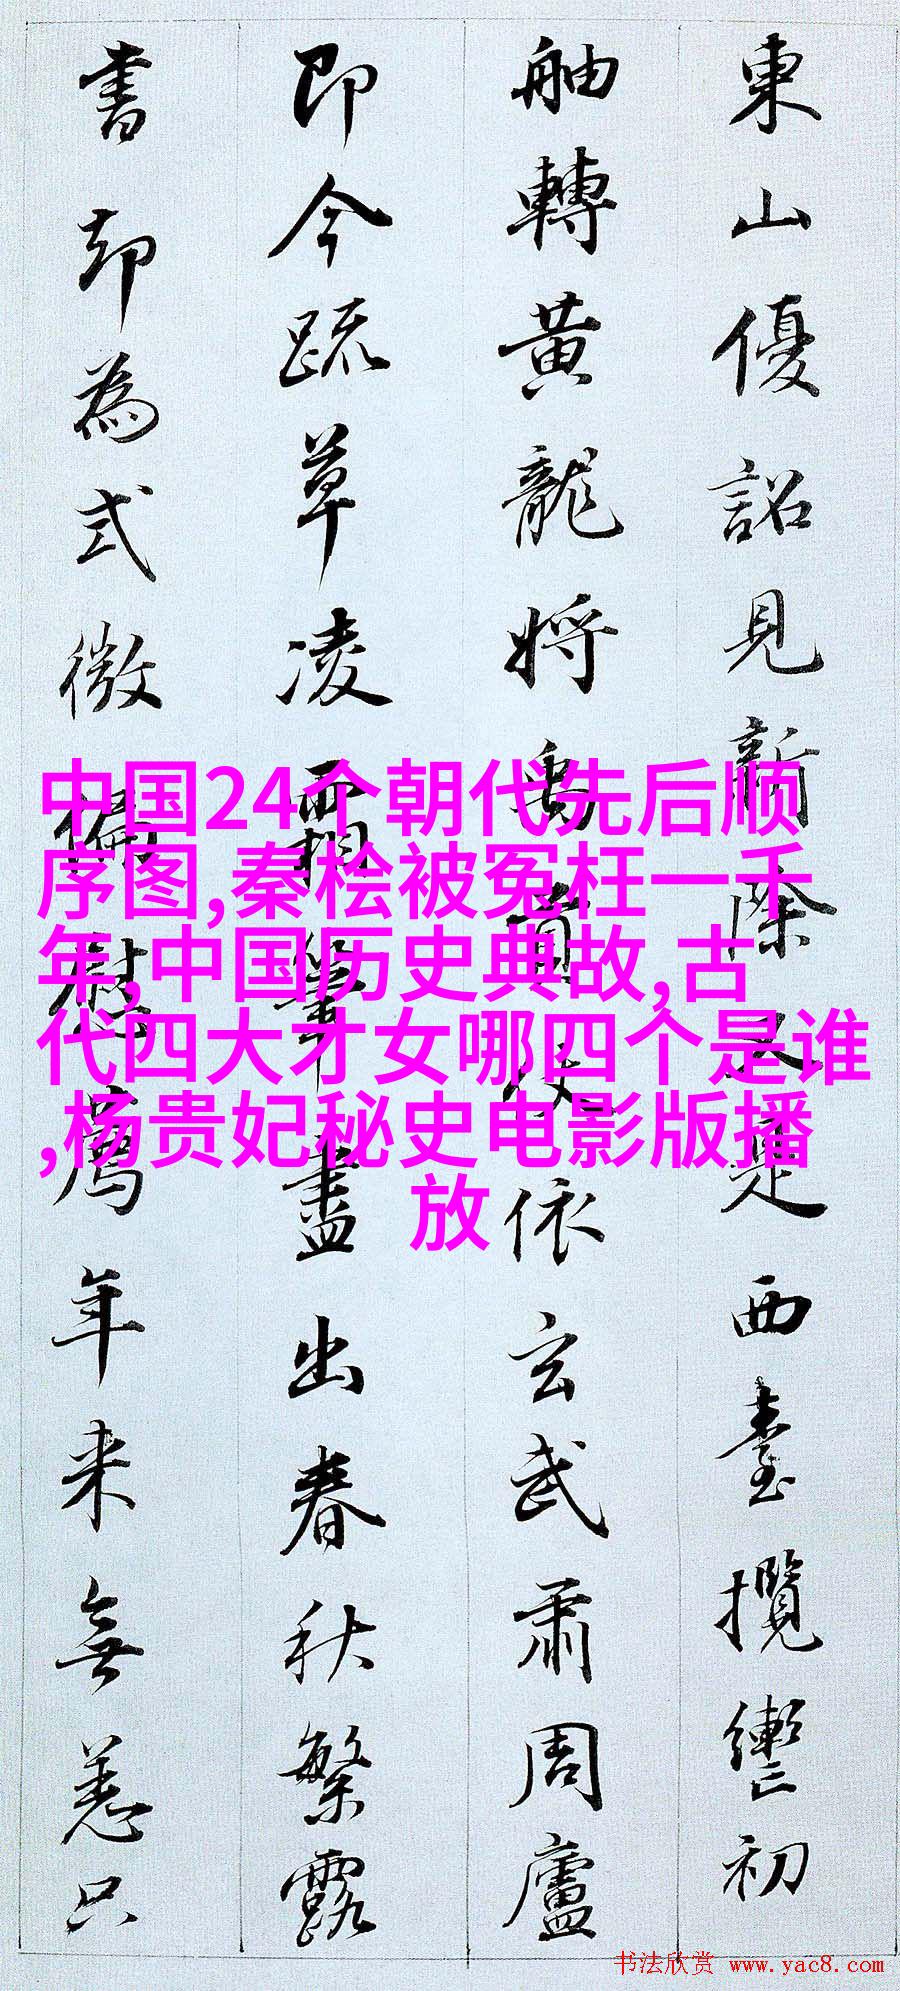 東山優詔見新除又是西臺攬轡初
舳轉黄龍將島賓仗依玄武肅周廬
即今疏草凌霜筆盡出春秋繁露
書却為式微偏慰薦年来無恙只
中国24个朝代先后顺
序图,秦桧被冤枉一千
年,中国历史典故,古
代四大才女哪四个是谁
,杨贵妃秘史电影版播
放
书法欣赏 www.yac8.com